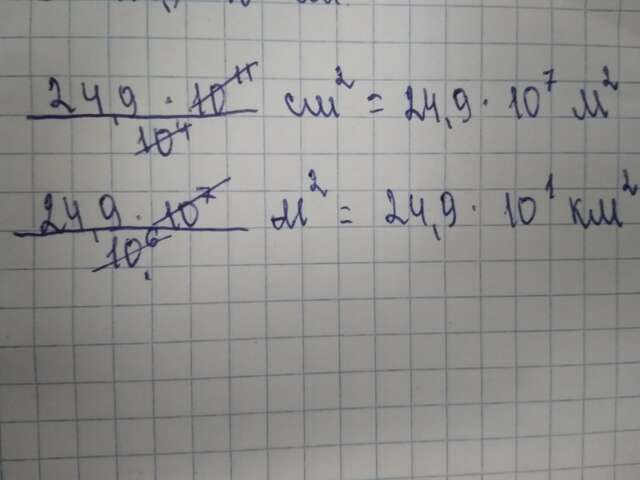 24,9 · 10^11 / 10^4 см² = 24,9 · 10^7 м²
24,9 · 10^7 / 10^6 м² = 24,9 · 10^1 км²